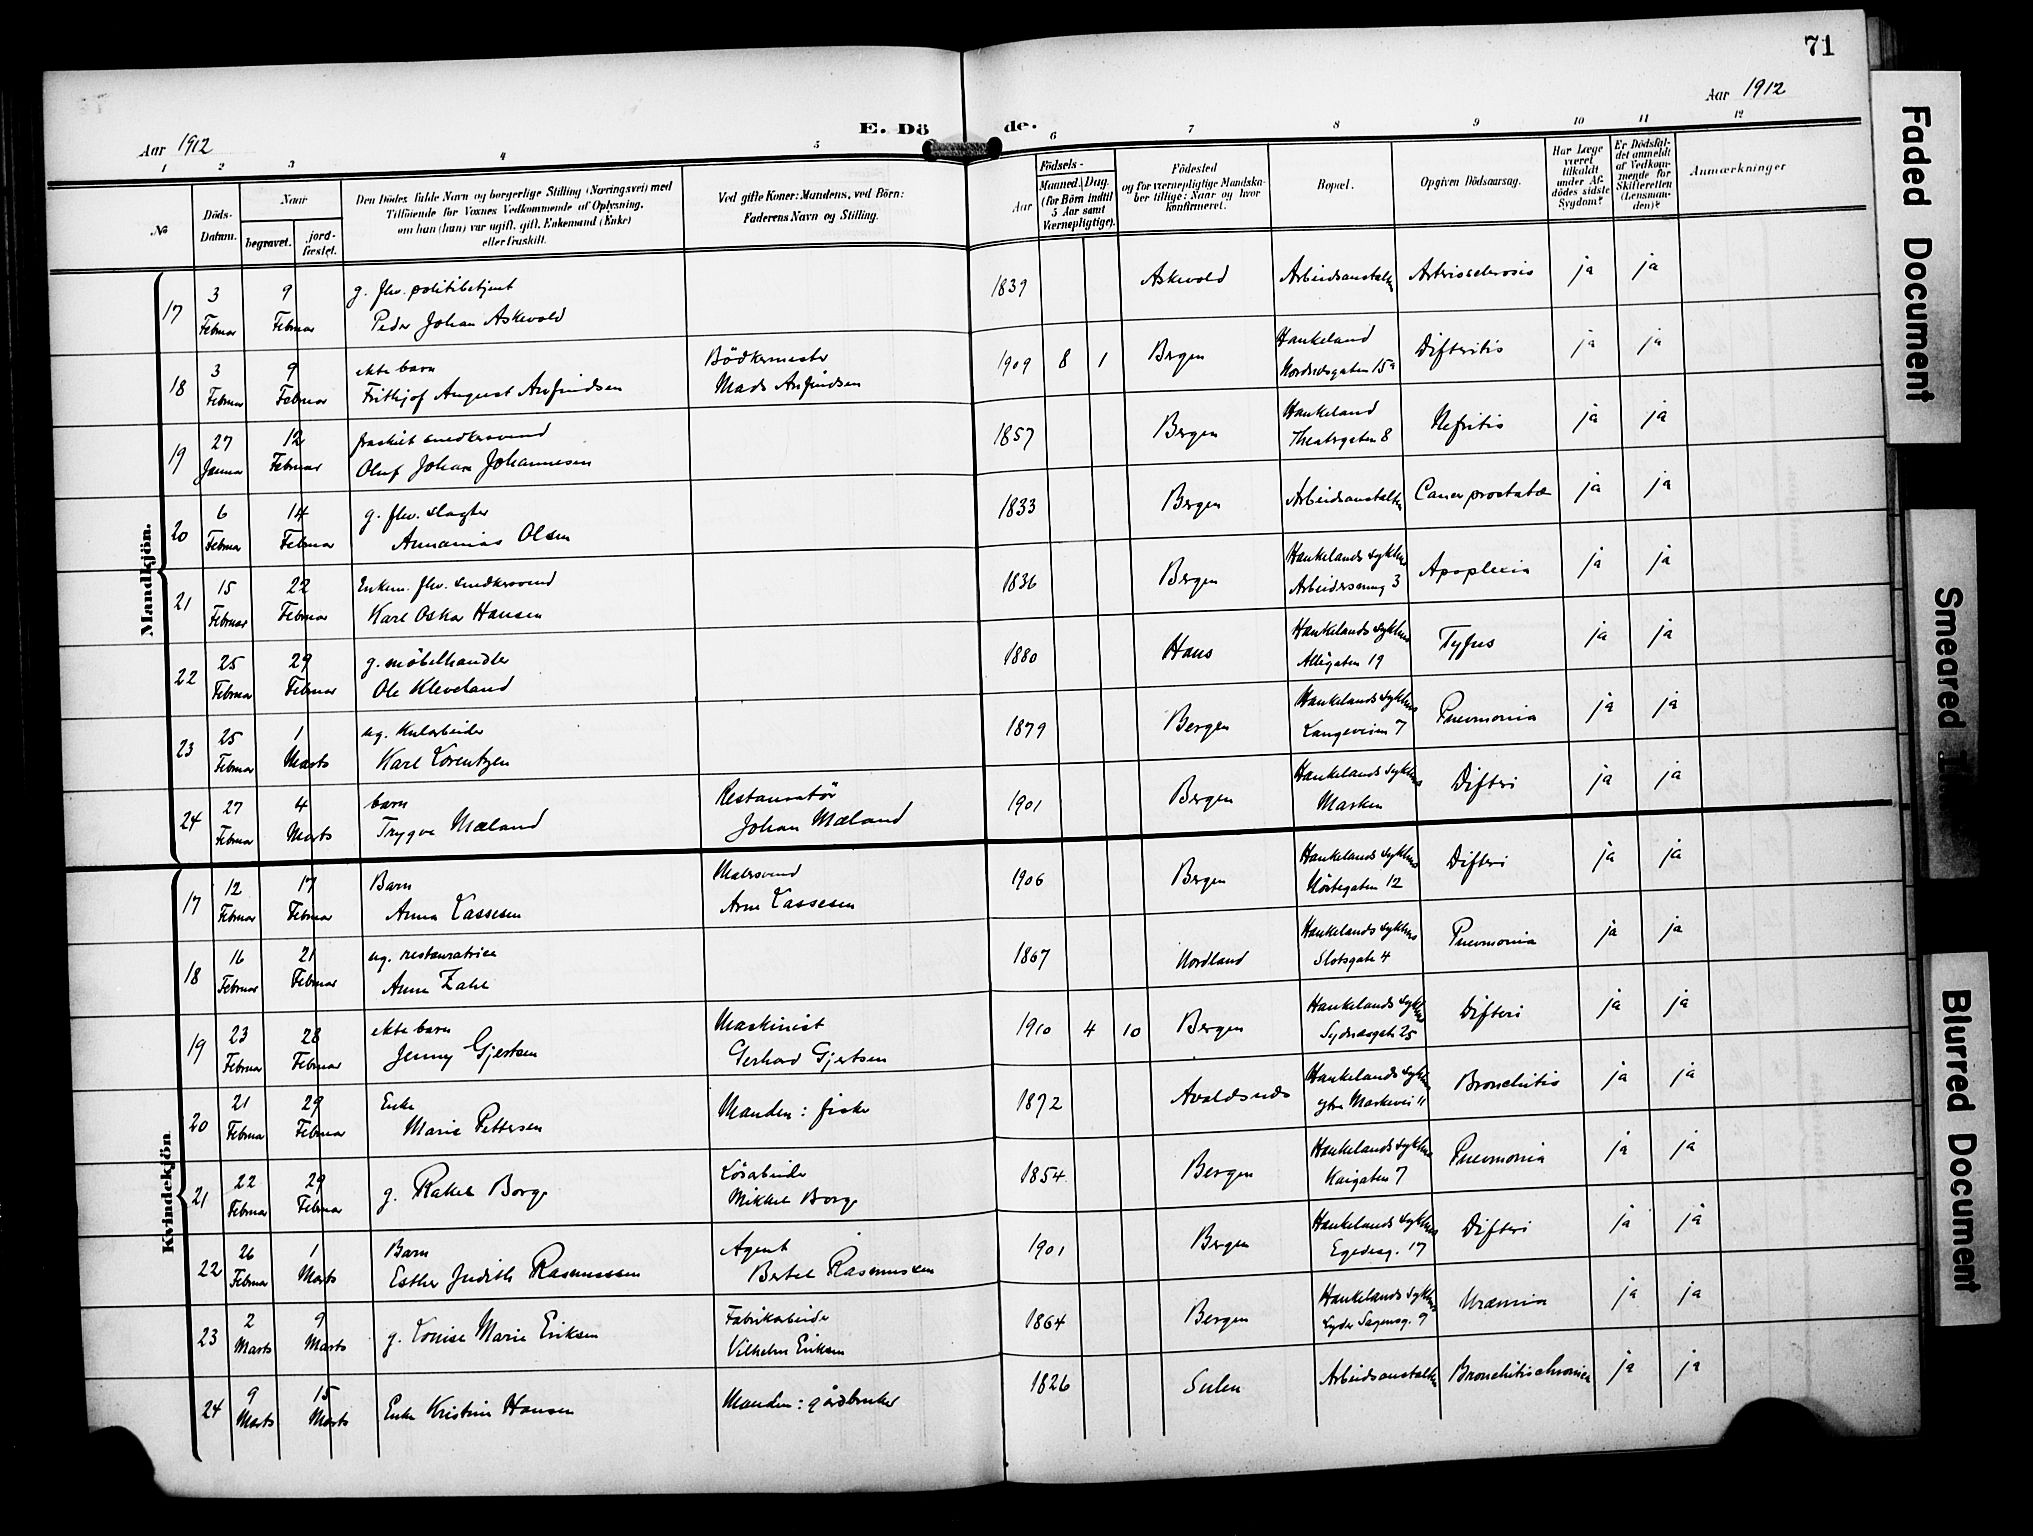 71
Aar 1912
Aar 1912
E. Döde.
1 2 3 4 5 6 7 8 9 10 11 12
No
Döds-Datum.
Naar
begravet. jord-fæstet.
Den Dödes fulde Navn og borgerlige Stilling (Næringsvei) med
Tilföiende for Voxnes Vedkommende af Oplysning,
om han (hun) var ugift, gift, Enkemand (Enke)
eller fraskilt.
Ved gifte Koner: Mandens, ved Börn:
Faderens Navn og Stilling.
Födsels-
Aar Maaned. Dag.
(for Börn indtil
5 Aar samt
Værnepligtige).
Födested
og for værnepligtige Mandska-
ber tillige: Naar og hvor
konfirmeret.
Bopæl.
Opgiven Dödsaarsag.
Har Læge
været
tilkaldt
under Af-
dödes sidste
Sygdom?
Er Dödsfal-
det anmeldt
af Vedkom-
mende for
Skifteretten
(Lensman-
den)?
Anmærkninger
Mandkjön.
17 3 Februar 9 Februar g. fhv. politibetjent
Peder Johan Askevold 1839 Askevold Arbeidsanstalten Artriosclerosis ja ja
18 3 Februar 9 Februar ekte barn
Frithjof August Anfindsen Bödkermester
Mads Anfindsen 1909 8 1 Bergen Haukeland
Nordnesgaten 15a Difteritis ja ja
19 27 Januar 12 Februar fraskilt snedkersvend
Oluf Johan Johannesen 1857 Bergen Haukeland
Theatergaten 8 Nefritis ja ja
20 6 Februar 14 Februar g. fhv. slagter
Annanias Olsen 1833 Bergen Arbeidsanstalten Cancer prostatæ ja ja
21 15 Februar 22 Februar Enkem. fhv. snedkersvend
Karl Oskar Hansen 1836 Bergen Haukelands sykhus
3 Apoplexia ja ja
22 25 Februar 29 Februar g. møbelhandler
Ole Kleveland 1880 Haus Haukelands sykhus
Allégaten 19 Tyfus ja ja
23 25 Februar 1 Marts ug. Kularbeider
Karl Lorentzen 1879 Bergen Haukelands sykhus
7 Pneumonia ja ja
24 27 Februar 4 Marts barn
Trygve Mæland Restauratør
Johan Mæland 1901 Bergen Haukelands sykhus
Marken Difteri ja ja
Kvindekjön.
17 12 Februar 17 Februar Barn
Anna Lassesen Malersvend
Arne Lassesen 1906 Bergen Haukelands sykhus
Nöstegaten 12 Difteri ja ja
18 16 Februar 21 Februar ug. restauratrice
Anna Zahl 1867 Nordland Haukelands sykhus
Slotsgate 4 Pneumonia ja ja
19 23 Februar 28 Februar ekte barn
Jenny Gjertsen Maskinist
Gerhard Gjertsen 1910 4 10 Bergen Haukelands sykhus
Sydnesgate 25 Difteri ja ja
20 21 Februar 29 Februar Enke
Marie Pettersen Manden: fisker 1872 Avaldsnes Haukelands sykhus
ytre Markevei 11 Bronchitis ja ja
21 22 Februar 29 Februar g. Rakel Borge Løsarbeider
Mikkel Borge 1854 Bergen Haukelands sykhus
Kaigaten 7 Pneumonia ja ja
22 26 Februar 1 Marts Barn
Esther Judith Rasmussen Agent
Bertel Rasmussen 1901 Bergen Haukelands sykhus
Egedesg. 17 Difteri ja ja
23 2 Marts 9 Marts g. Louise Marie Eriksen Fabrikarbeider
Vilhelm Eriksen 1864 Bergen Haukelands sykhus
Lyder Sagensg. 9 Uræmia ja ja
24 9 Marts 15 Marts Enke Kristine Hansen Manden: gårdbruker 1826 Sulen Arbeidsanstalten Bronchitis chronica ja ja
Faded Document
Smeared
Blurred Document